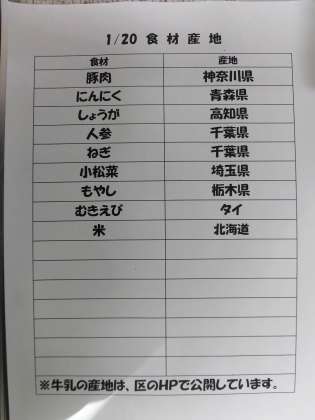 1/20 食材産地
食材 産地
豚肉 神奈川県
にんにく 青森県
しょうが 高知県
人参 千葉県
ねぎ 千葉県
小松菜 埼玉県
もやし 栃木県
むきえび タイ
米 北海道
※牛乳の産地は、区のHPで公開しています。